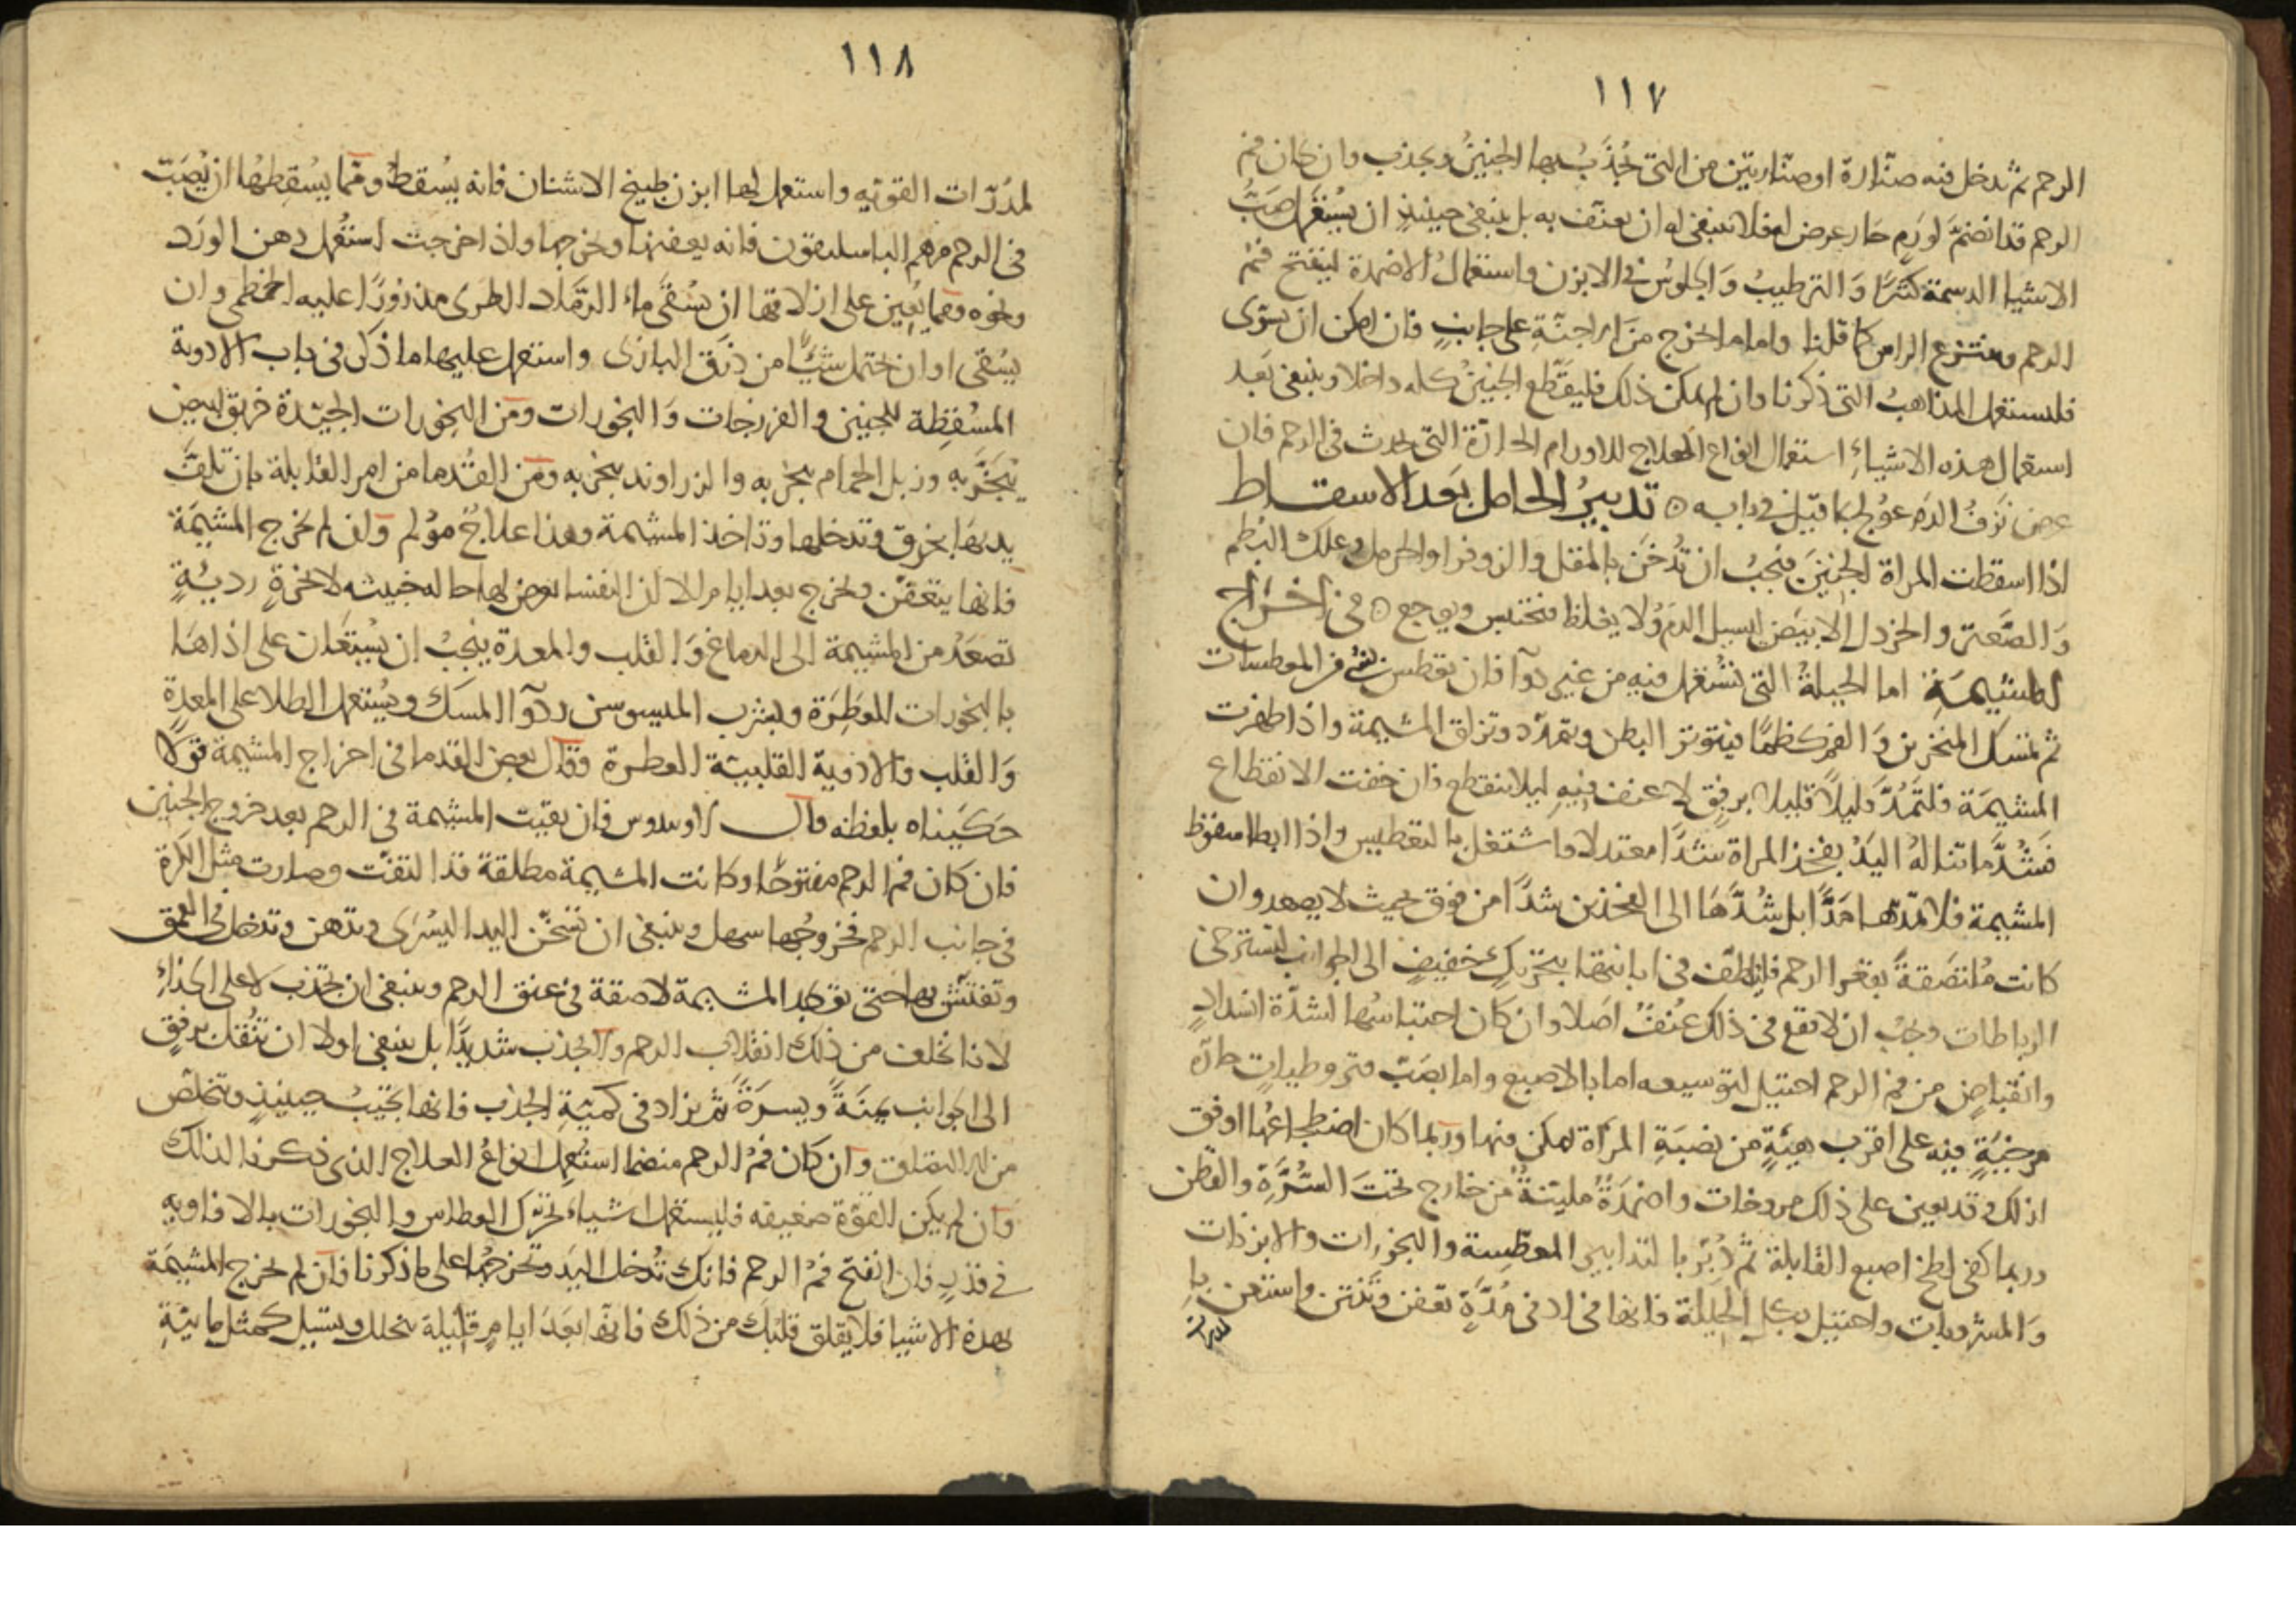 ١١٧
الرحم ثم تدخل فيه صنّارة او صنّارتين من التى تجُذَبُ بها الجنينُ ويجذب وان كان فم
الرحم قد انضمَّ لورَمٍ حَار عرض له فلا ينبغى له ان يعنّف به بل ينبغى حينيذٍ ان يُستعْمل صَبُّ
الاشيا الدسمة كثيرًا وَ الترطيبُ وَ الجلوُس فى الابزن واستعمالُ الاضمدة لينفتح فمُ
الرحم وينتزع الراس كما قلنا واما ما يخرج من الاجنّةِ على جانبٍ فان امكن ان يسوّى
فليستعمل المذاهبُ التى ذكرنا وان لم يمكن ذلك فليقَطّع الجنينُ كله داخلا وينبغى بَعد
استعمال هذه الاشياءِ استعمال انواع العلاج للاورام الحارّة التى تحدث فى الرحم فان
عرض نَزفُ الدَم عوُلج بما قيل فى بابه ۞ تدبيرُ الحامل بَعد الاسقاط
اذا اسقطت المراة الجنينَ فيجبُ ان تُدخَّن بالمقل والزوفرا والحرمل وعلك البُطم
وَ الصَّعتر والخردل الابيَض ليسيل الدَم وَلا يغلظ فيحتبس ويوجع ۞ فى اخراج
المشيمَةِ اما الحيلةُ التى تُستعْمل فيهِ من غير دوآ فان تعطس بشئ من المعطسات
ثم تمُسك المنخرين وَ الفم كظمًا فيتوتر البطن ويتمدّد وتزلق المشيمة واذا ظهرت
المشيمَة فلتُمَدَّ قليلاً قليلا برفِقٍ لا عنف فيهِ ليلا ينقطع فان خفت الانقطاع
فَشُدَّ ما تنالهُ اليَدُ بفخِذ المراة شَدًّا معتدلا واشتغل بالتعطيس واذا ابطا سقوط
المشيمة فلا تمدّها مَدًّا بل شُدَّهَا الى الفخذين شدًّا من فوق بحيث لا يصعد وان
كانت مُلتصَقةً بقعر الرحم فتلطّف فى ابانتها بتحريكٍ خفيفٍ الى الجوانب لتسترخى
الرباطات وَيجبْ ان لا يقع فى ذلك عُنفٌ اصَلا وان كان احتباسُها لشدّة انسدادٍ
وانقباضٍ من فم الرحم احتيل لتوسيعه اما بالاصبع واما بصَبّ قيروطياتٍ حارّة
مرخيّةٍ فيه على اقرب هيئَةٍ من نصبَةِ المرأة لتمكن منها وربما كان اضطجاعُها اوفق
لذلك وقد يعين على ذلك مروخات واضمَدَةٌ ملينّةٌ من خارج تحتَ السُّرَّةِ والقطن
وربما كفى لطخ اصبع القابلة ثم دُبِّر بالتدابير المعطِّسة والبخورات والابزنات
وَ المشروبات واحتيل بكل الحيلة فانها فى ادنى مُدَّةٍ تعفن وَتنتن واستعن بِا
لمدُرّات
١١٨
لمدُرّات القوّيه واستعمل لها ابزن طبيخ الاشنان فانه يُسقط وممّا يسُقِطهُا ان يُصَبّ
فى الرحم مرهم الباسليقون فانه يعفنها ويخرجها واذا خرجت استعُمل دهن الورَد
ونحوه ومما يُعِين على ازلاقها ان يسُقَى ماء الرَمّاد الطرى مذرُورًا عليه الخطمى وان
يسُقى او ان تحتمل شيًّا من ذَرق البازى واستعمل عليها ما ذكر فى باب الادوية
المسُقِطة للجنين والفرزجات وَ البخورات ومَن البخورات الجيّدة خربق ابيض
يُبَخَّر بهِ وزبل الحمام يبخر به والزراوند يبخر به ومَن القُدما من امر القابلة بان تلفَّ
يدَها بخِرقٍ وتدخلها وتاخذ المشيمة وهذا علاجٌ مؤلم وَان لم تخرج المشيمَة
فانها يتعَفّن ويخرج بعد ايام الا ان النفسا يعرض لها حاله خبيثه لابخرةٍ رديئةٍ
تصَعَدُ من المشيمة الى الدماغ وَ القلب والمعدة فيجبُ ان يُستَعَان على اذاهَا
بالبخورات المعطِرَة ويشرب الميسوسن ودوآ المسك ويُستعمل الطلا على المعدَة
وَ القلب والادوية القلبيّة العطرة وقال بعض القدما فى اخراج المشيمة قولاً
حَكيَناه بلفظه قال اوسدوس فان بقيت المشيمة فى الرحم بعد خروج الجنين
فان كان فم الرحم مفتوحًا وكانت المشيمة مطلقة قد التفّت وصارت مثل الكرة
فى جانب الرحم فخروجُها سهل وينبغى ان تسَخّن اليد اليسُرَى وتدهن وتدخل فى العمق
وتفتّش بها حتى توجد المشيمة لاصقة فى عنق الرحم وينبغى ان تجذب لا على الحذاءِ
لانا نخاف من ذلك انقلاب الرحم ولا تجذب شديدًا بل ينبغى اولا ان تنُقل برفقٍ
الى الجوانب يمنَةً وَيسرَةً ثمّ يزاد فى كميّةِ الجذب فانها تُجيبُ حينيذٍ وتتخلّص
من التعلق وَان كان فمُ الرحم منضما استُعمل انواعُ العلاج الذى ذكرنا لذلك
وان لم يكن القوّة ضعيفه فليستعمل اشياء تحرّك العطاس والبخورات بالافاويه
فى قدرٍ فان انفتح فمُ الرحم فانك تُدخل اليَد وتخرجُها على ما ذكرنا فان لم تخرج المشيمَة
بهذه الاشيا فلا يقلق قلبُك من ذلك فانّها بَعدَ ايامٍ قليلة تتحلل وتسَيل كمثل مائيّةِ